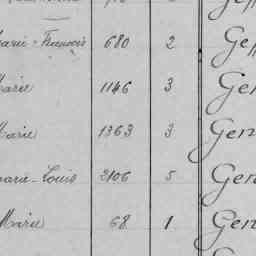 Marie-François 680 2 Geff
Marie 1146 3 Gen
Marie 1363 3 Gen
Marie-Louis 2106 5 Gen
Marie 68 1 Gen